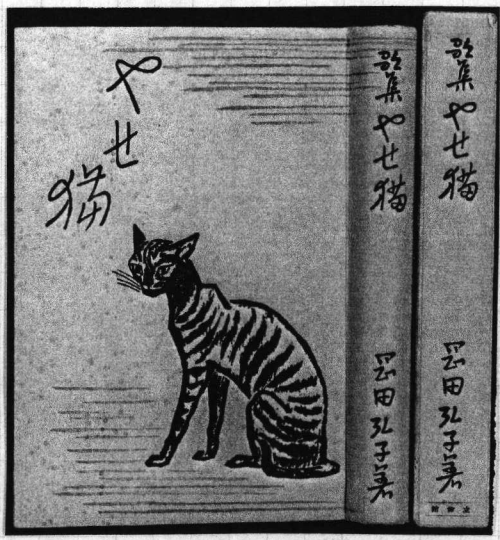 やせ猫
歌集 やせ猫 岡田弘子著
歌集 やせ猫 岡田弘子著